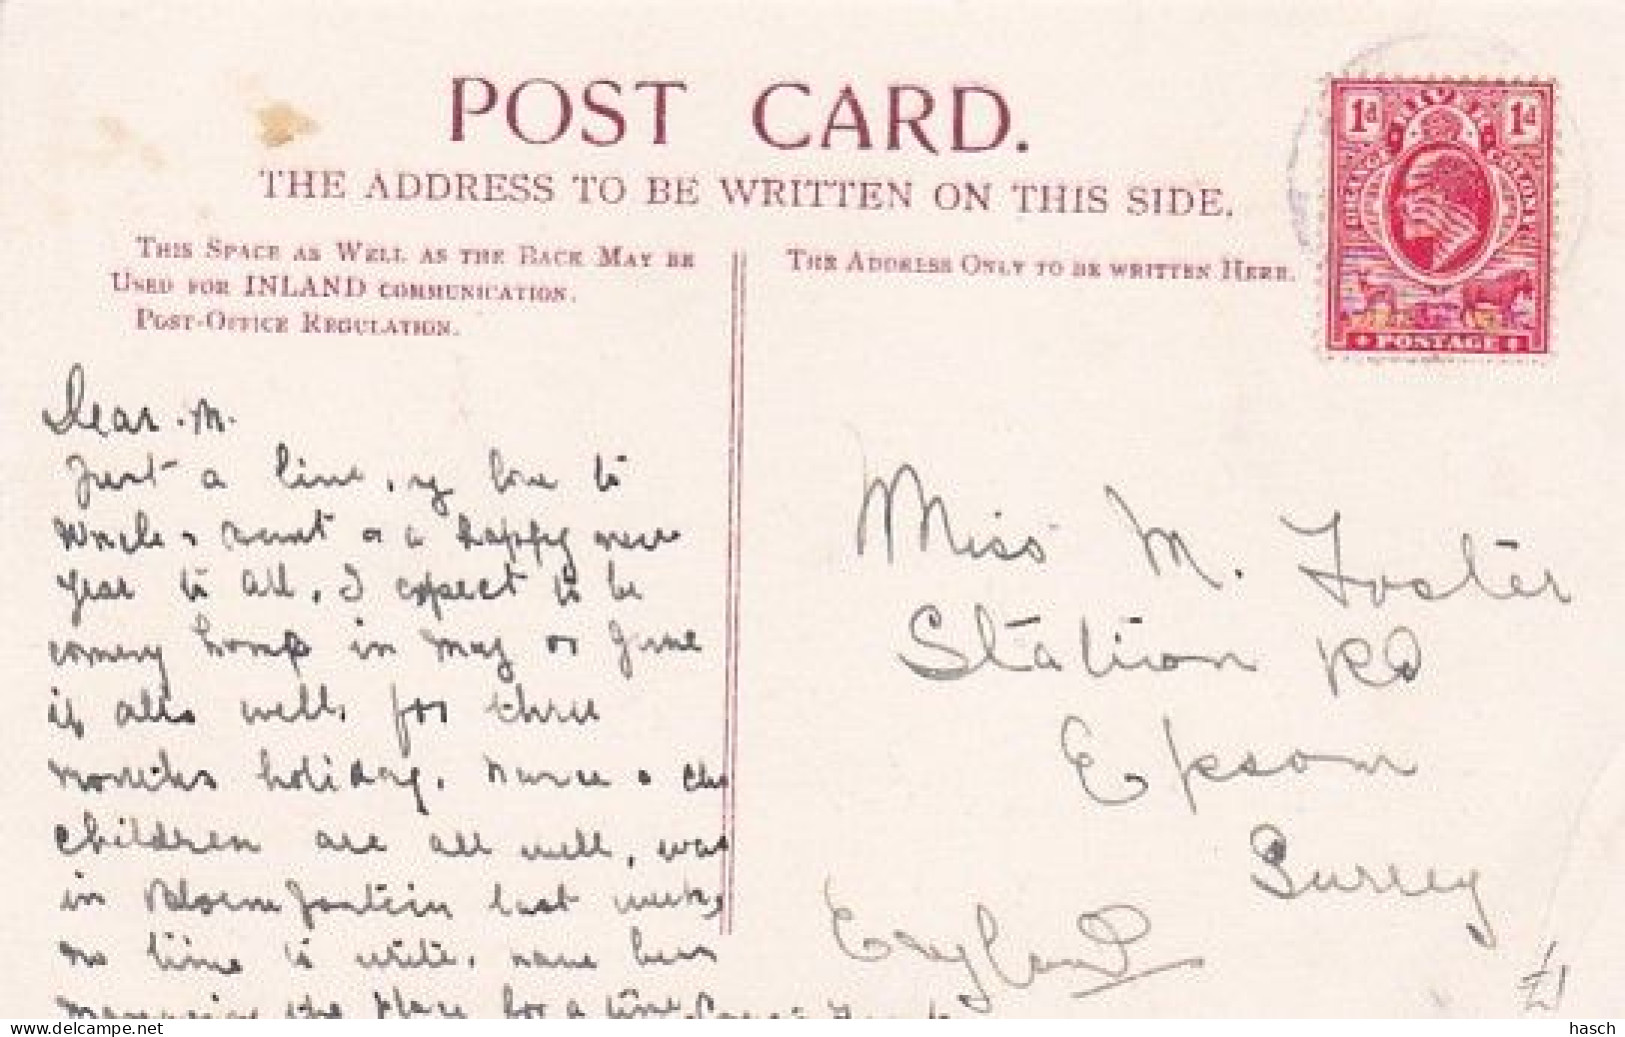 POST CARD.
THE ADDRESS TO BE WRITTEN ON THIS SIDE.
THIS SPACE AS WELL AS THE BACK MAY BE
USED FOR INLAND COMMUNICATION.
POST-OFFICE REGULATION.
THE ADDRESS ONLY TO BE WRITTEN HERE.
1d 1d
ORANGE COLONY
POSTAGE
Dear M.
Just a line, my love to
Uncle & Aunt & a happy new
year to all. I expect to be
coming home in May or June
if alls well, for three
months holiday. Nurse & the
children are all well, was
in Bloemfontein last week,
no time to write, have been
managing the place for a time
Miss M. Foster
Station Rd
Epsom
Surrey
England
£1
www.delcampe.net
hasch